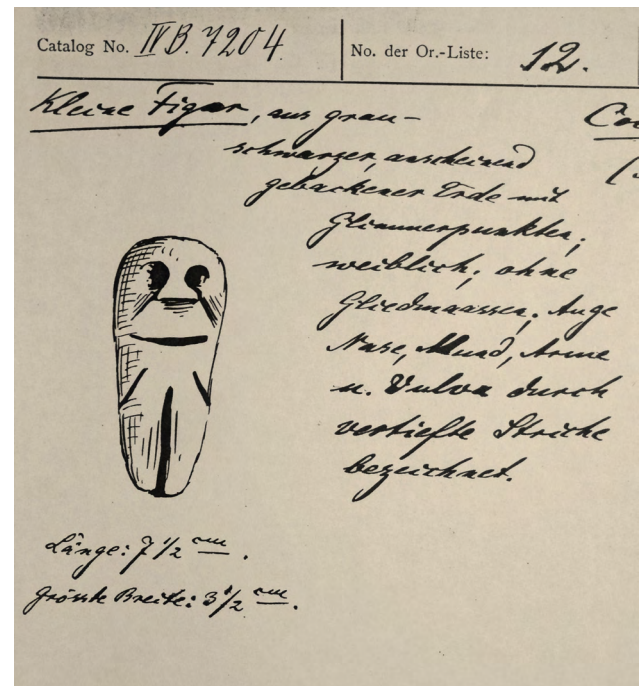 Catalog No. IV B. 7204.
No. der Or.-Liste: 12.
Kleine Figur, aus grau-
schwarzer, anscheinend
gebackener Erde mit
Glimmerpunkten;
weiblich; ohne
Gliedmaassen; Auge
Nase, Mund, Arme
u. Vulva durch
vertiefte Striche
bezeichnet.
Länge: 7 1/2 cm.
Grösste Breite: 3 1/2 cm.